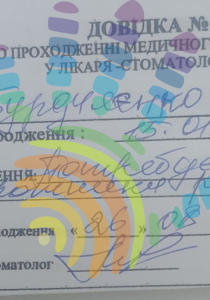 ДОВІДКА №
О ПРОХОДЖЕННІ МЕДИЧНОГ
У ЛІКАРЯ-СТОМАТОЛО
одження : 15.01
ЕННЯ: Потребує
одження « 26 » 08
оматолог